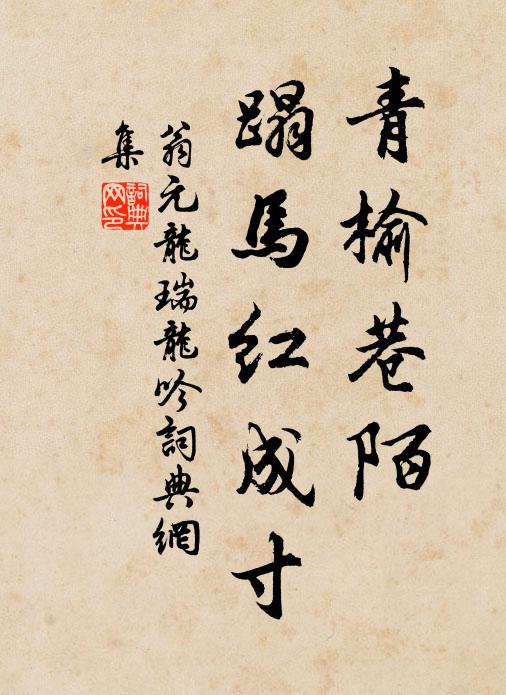 青榆巷陌
蹋馬红成寸
翁元龍瑞龍吟詞典網
集
詞典网印